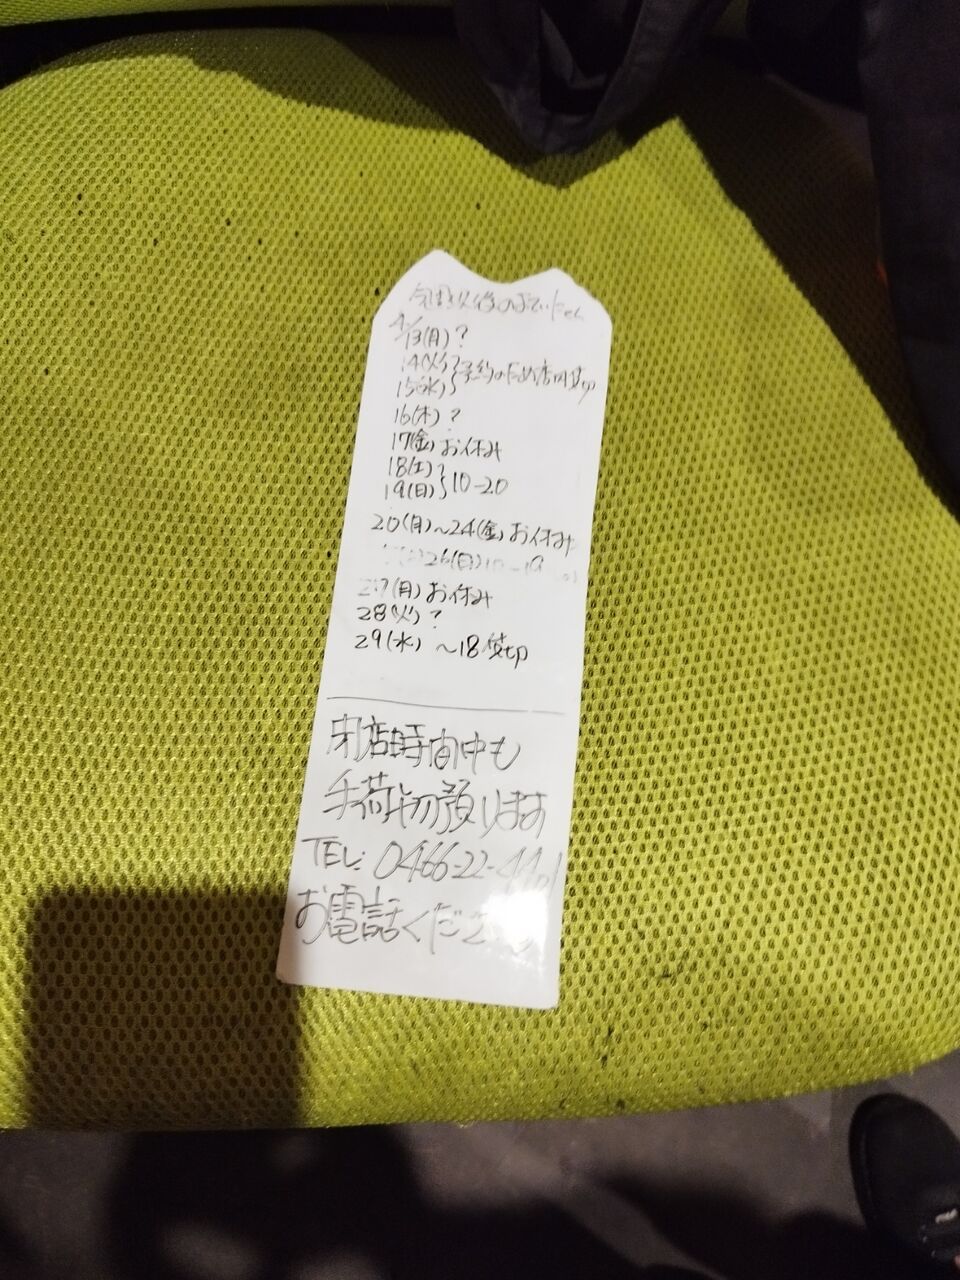 今週以後のよていたん
4/13(月)?
14(火)
15(水) 予約のため店内貸切
16(木)?
17(金)お休み
18(土)
19(日) 10-20
20(月)~24(金)お休み
26(日)
27(月)お休み
28(火)?
29(水) ~18貸切
閉店時間中も
手荷物預ります
TEL: 0466-22-
お電話ください